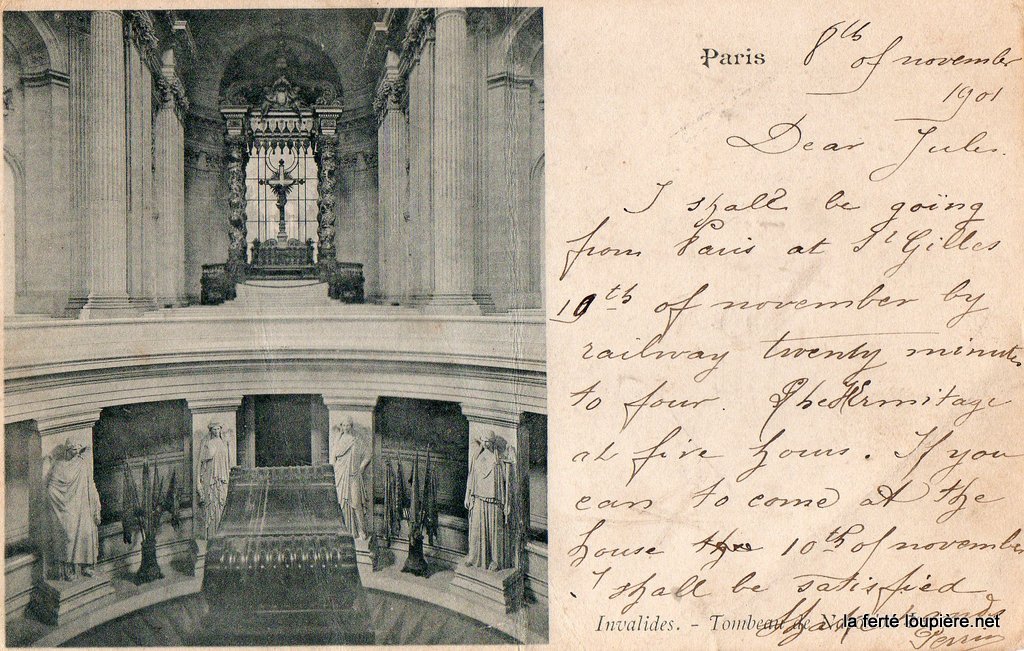 Paris
8th of november
1901
Dear Jules.
I shall be goïng
from Paris at St Gilles
10th of november by
railway twenty minutes
to four. the Ermitage
at five hours. If you
can to come at the
house 10th of november
I shall be satisfied
Invalides. - Tombeau de
la ferté loupière.net